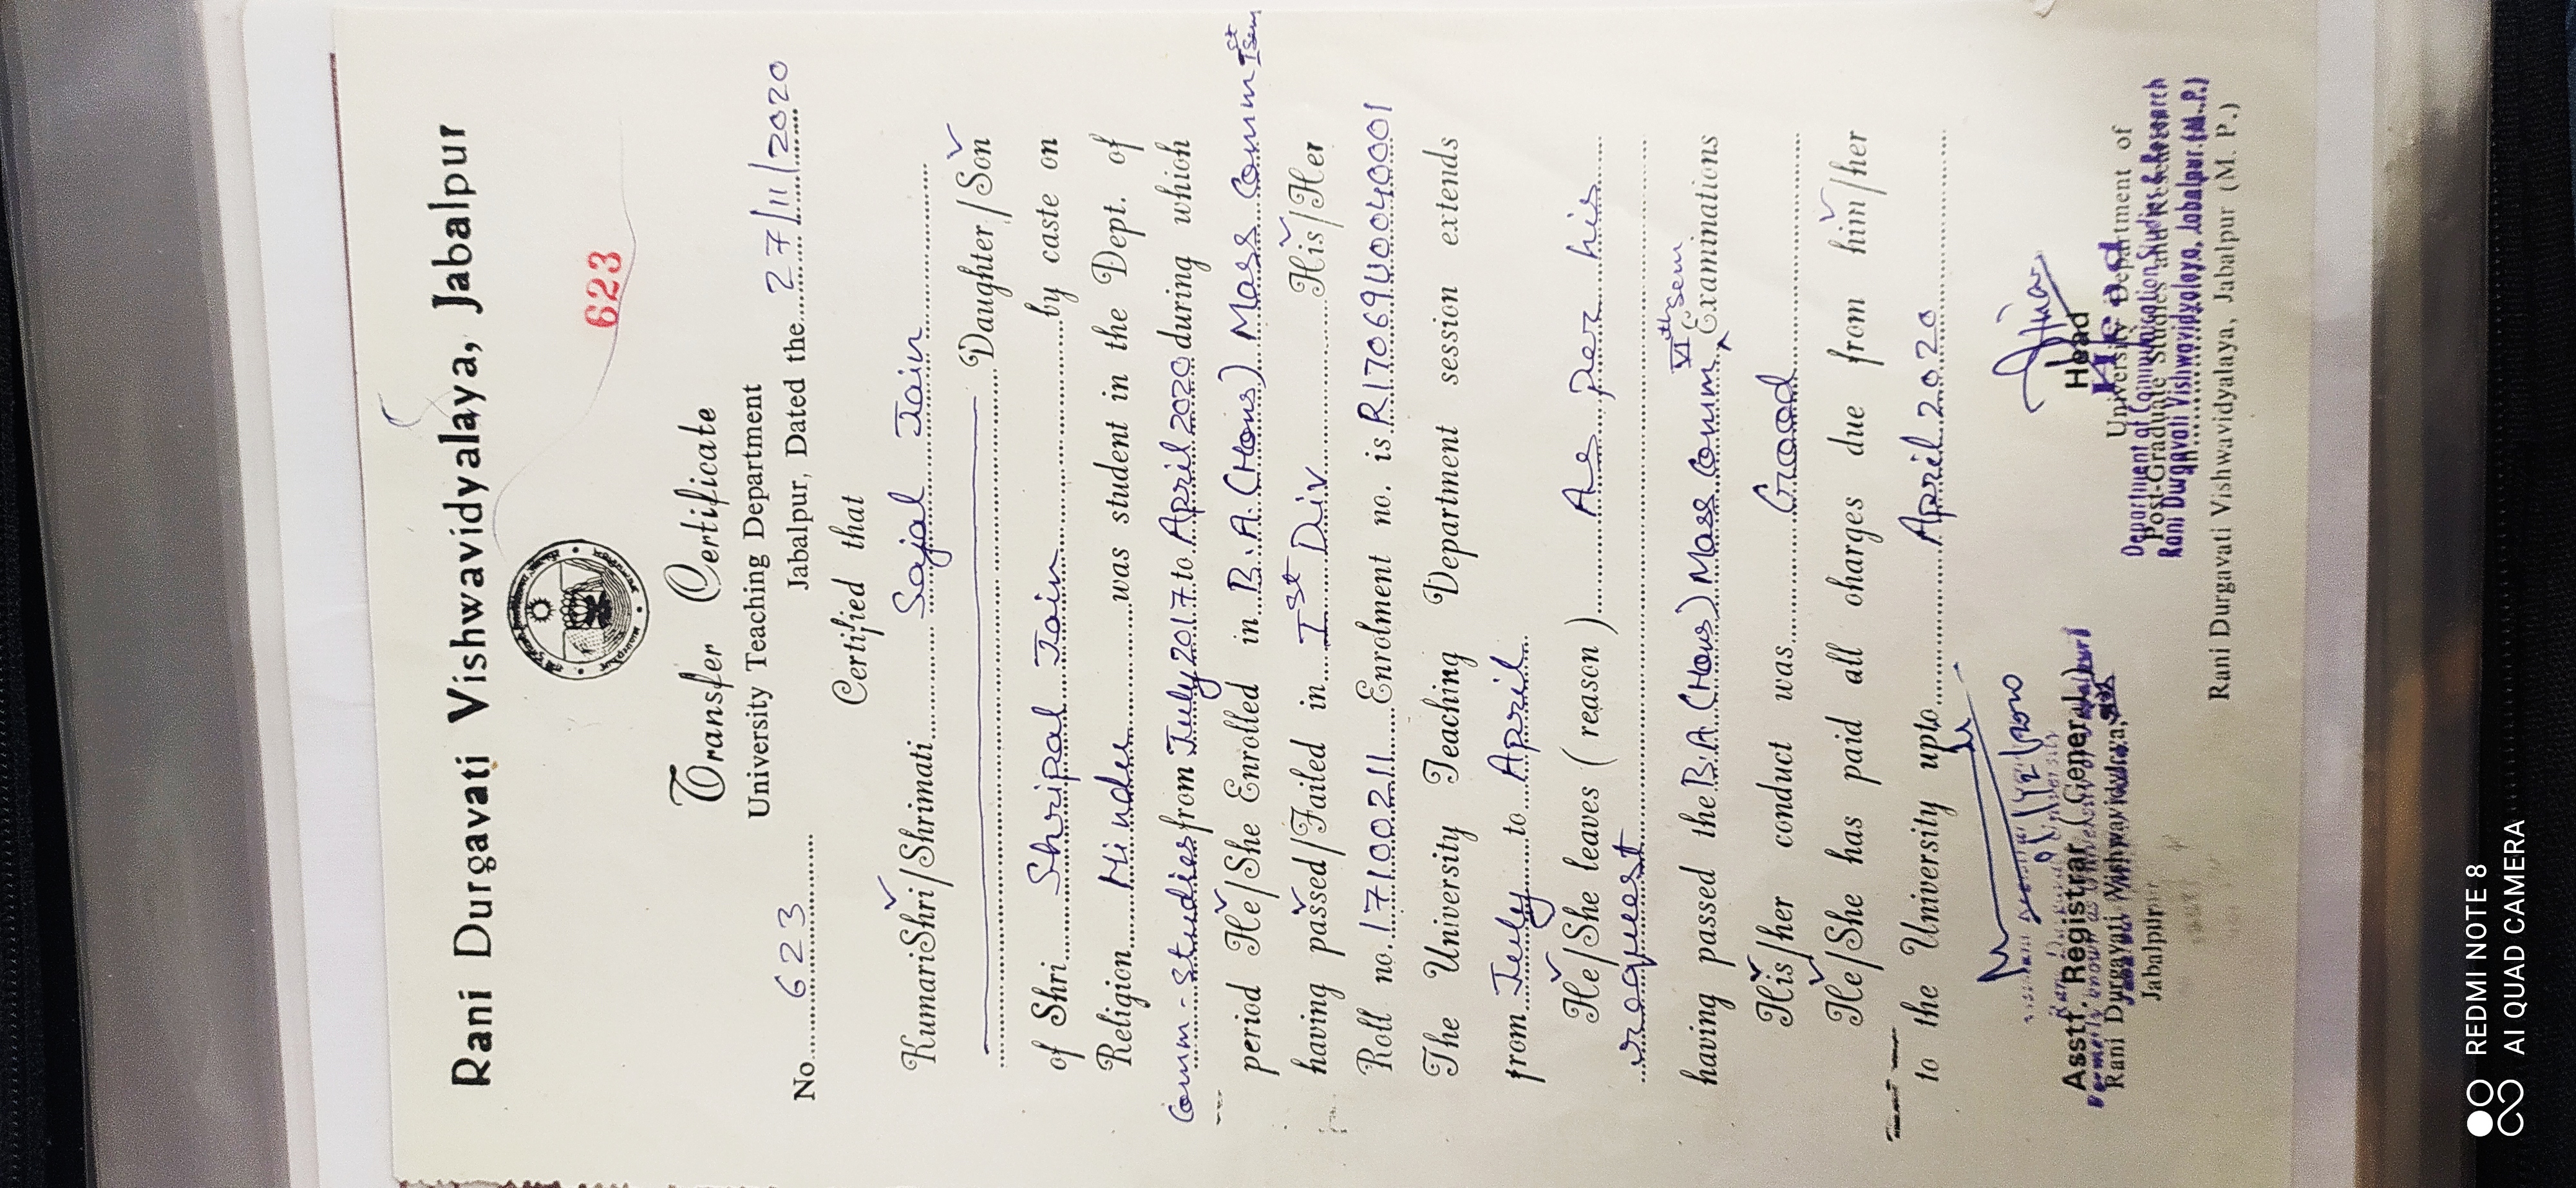 Rani Durgavati Vishwavidyalaya, Jabalpur
623
Transfer Certificate
University Teaching Department
No. 623 Jabalpur, Dated the 27/11/2020
Certified that
Kumari/Shri/Shrimati Sajal Jain
Daughter/Son
of Shri Shripal Jain by caste on
Religion Hindu was student in the Dept. of
Comm-Studies from July 2017 to April 2020 during which
period He/She Enrolled in B.A. (Hons) Mass Comm Ist Sem
having passed/Failed in Ist Div His/Her
Roll no. 17100211 Enrolment no. is R1706940040001
The University Teaching Department session extends
from July to April
He/She leaves ( reason ) As per his
request
having passed the B.A (Hons) Mass Comm VIth Sem Examinations
His/her conduct was Good
He/She has paid all charges due from him/her
to the University upto April 2020
Asstt. Registrar (General)
Rani Durgavati Vishwavidyalaya,
Jabalpur
Head
Head
University Department of
Department of Communication Studies & Research
Post-Graduate Studies and Research
Rani Durgavati Vishwavidyalaya, Jabalpur (M.P.)
Rani Durgavati Vishwavidyalaya, Jabalpur (M. P.)
REDMI NOTE 8
AI QUAD CAMERA